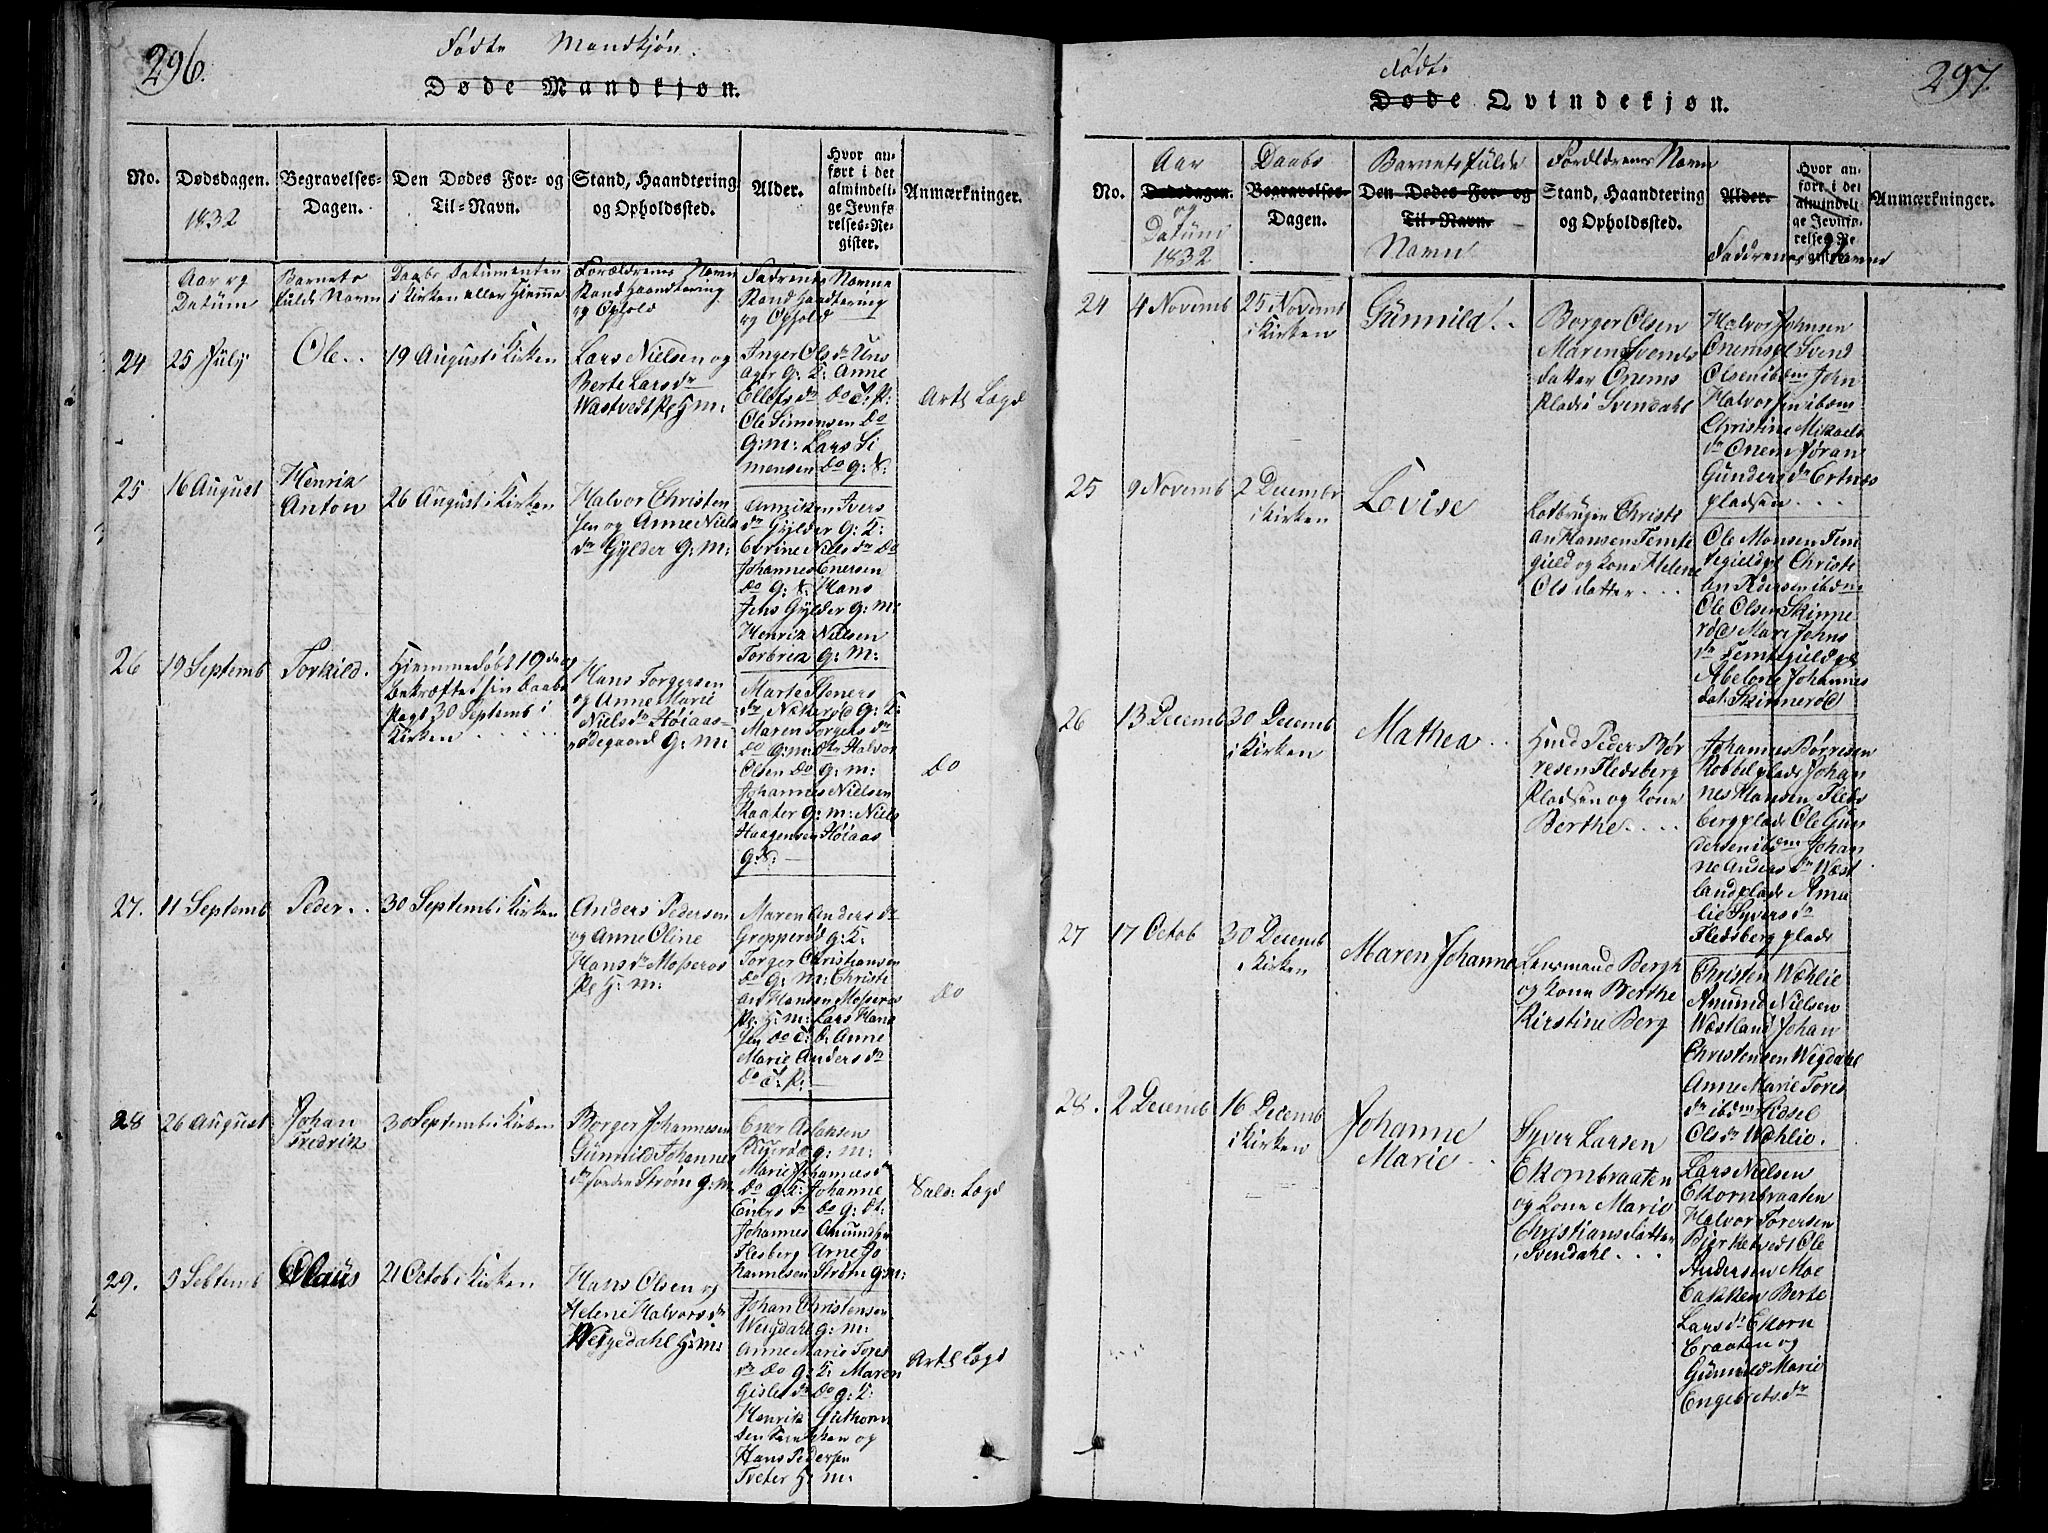 296.
Fødte Mandkjøn.
Døde Mandkjøn.
No.
Dødsdagen.
1832
Begravelses-
Dagen.
Den Dødes For- og
Til-Navn.
Stand, Haandtering
og Opholdssted.
Alder.
Hvor an-
ført i det
almindeli-
ge Jevnfø-
relses-Re-
gister.
Anmærkninger.
Aar og
Datum
Barnets
fulde Navn
Daabs Datumenten
i Kirken eller Hjemme
Forældrenes Navn
Stand Haandtering
og Ophold
Fadrenes Navne
Stand Haandtering
og Ophold
24
25 July
Ole
19 August i Kirken
Lars Nielsen og
Berte Larsdr
Wastvedt
Inger Olsdr Uns
ager g: K: Anne
Ellefsdr Do
Ole Simensen Do
g: m: Lars Si
mensen Do g: K:
25
16 August
Henrik
Anton
26 August i Kirken
Halvor Christen
sen og Anne Niels
dr Gylder G: M:
Anniken Ivers
dr Gylder G: K:
Johannes Enersen
Do g: K Hans
Jens Gylder g: m:
Henrik Nielsen
Torbrik g: M:
26
19 Septemb
Torkild.
Hjemmedøbt 19 de og
bekræftet sin Daabs
Pagt 30 Septemb i
Kirken
Hans Torgersen
og Anne Marie
Nielsdr Høiaas
ødegaard G: M:
Marte
Maren Torgersdr
Do G: m: Halvor
Olsen Do G: m:
Johannes Nielsen
Raater g: m: Niels
Haagensen Høiaas
Do
27.
11 Septemb
Peder
30 Septemb i Kirken
Anders Pedersen
og Anne Oline
Hansdr Mosseros
Maren Andersdr
Grepperød g: K:
Torger Christiansen
Do g: m: Christi
an Hansen Mosseros
Lars Hans
sen Do Anne
Marie Andersdr
Do
Do
28
26 August
Johan
Fredrik
30 Septemb i Kirken
Borger Johannesen
Gunnild Johannes
dr Strøm g: m:
Ener Aslaksen
Marie Johannesdr
Do g: K: Johanne
Einersdr Do
Johannes Amundsen
Flesberg Arne Jo
hannesen Strøm g: m:
Lægd
29.
5 Septemb
Claus
21 Octob i Kirken
Hans Olsen og
Helene Halvorsdr
Wegedahl
Johan Christensen
Weigdahl g: m:
Anne Marie Tores
dr Do g: K: Maren
Gislesdr Do g: K:
Henrik Guthorm
sen og
Hans Pedersen
Tveter
297.
Fødte
Døde Qvindekjøn.
No.
Aar
Dødsdagen.
og
Datum
1832
Daabs
Begravelses-
Dagen.
Barnets fulde
Den Dødes For- og
Til-Navn.
Navn
Forældrenes Navn
Stand, Haandtering
og Opholdssted.
Alder.
Faddrenes Navne
Hvor an-
ført i det
almindeli-
ge Jevnfø-
relses-Re-
gister.
Anmærkninger.
24
4 Novemb
25 Novemb
i Kirken
Gunnild
Borger Olsen
Maren Svends
datter Onems
Pladsi Svendahl
Halvor Johnsen
Onemspl Svend
Olsen ibdm John
Halvorsen ibdm
Christine Mikaels
dr Onem Jøran
Gundersdr Ertnes
pladsen
25
9 Novemb
2 Decembr
i Kirken
Lovise
Christi
an Hansen Temte
gield og Kone Helene
Olsdatter
Ole Monsen Tem
tegieldpl Christi
an Pedersen ibdm
Ole Olsen Skinne
rød Mari Johns
dr Temtegieldpl
Abelone Johannes
dat: Skinnerød
26
13 Decemb
30 Decemb
i Kirken
Mathea
Huusmd Peder Bør
resen Fledsberg
Pladsen og Kone
Berthe
Johannes Børresen
Kobbelplads Johan
nes Hansen Fleds
berg plads Ole Gun
dersen ibdm Johan
ne Andersdr Wæst
landplads Ama
lie Syversdr
Fledsberg plads
27
17 Octob
30 Decemb
i Kirken
Maren Johanne
Lensmand Bergh
og Kone Berthe
Kirstine Berg
Christen Wæhlie
Amund Nielsen
Wæstland Johan
Christensen Wegdahl
Anne Marie Tores
dr ibdm Sidsel
Olsdr Wæhlie.
28.
2 Decemb
16 Decemb
i Kirken
Johanne
Marie
Syver Larsen
Ekornbraaten
og Kone Marie
Christiansdatter
i Svendahl
Lars Nielsen
Ekornbraaten
Halvor Torersen
Bjerketvedt Ole
Andersen Moe
bakken Berte
Larsdr Ekorn
braaten og
Gunnild Marie
Engebretsdr